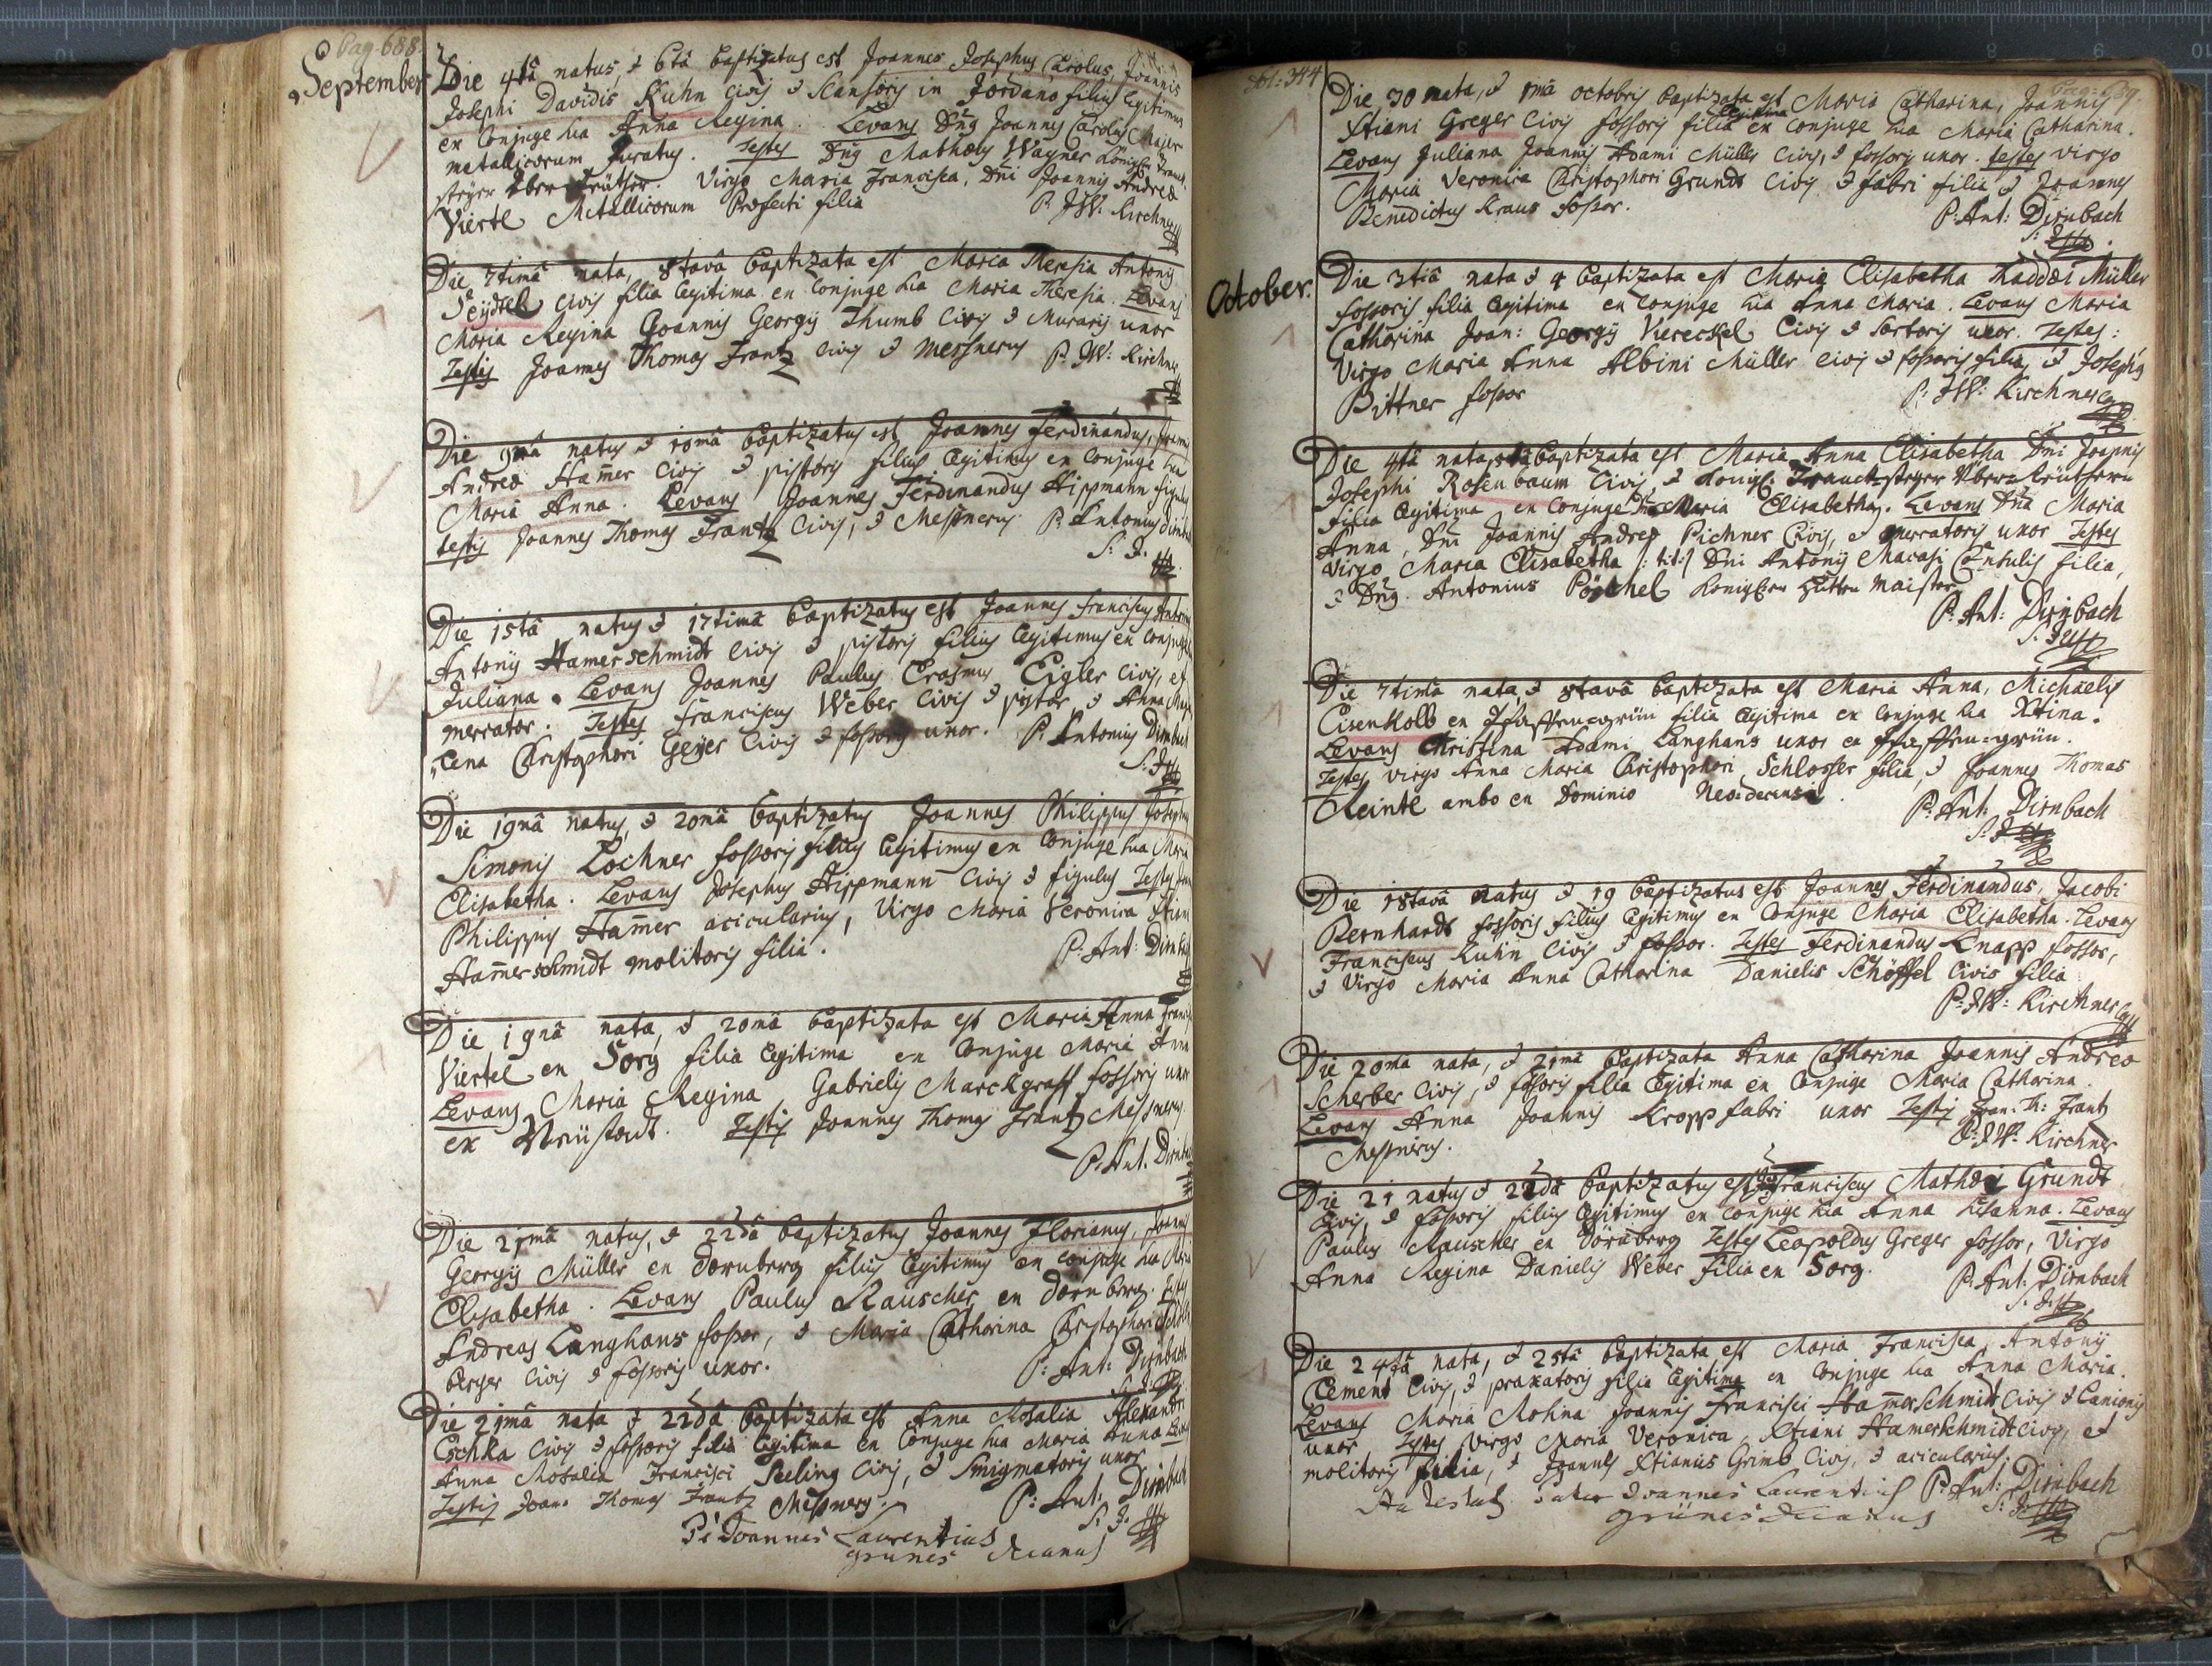 Pag. 688.
September
Die 4tâ natus, & 6tâ baptizatus est Joannes Josephus Carolus, Joannis
Josephi Davidis Kuhn Civis & Scansoris in Jordano filius legitimus
ex Conjuge sua Anna Regina. Levans Dng Joannes Carolus Majer
metallicorum Juratus. Testes Dng Mathæus Wagner Königl: Tranck
steyer Über Reüther. Virgo Maria Francisca, Dni Joannis Andreæ
Viertl Metallicorum Præfecti filia
P. JW: Kirchner
Die 7timâ nata, 8tavâ baptizata est Maria Theresia Antonij
Seÿdtel Civis filia legitima ex Conjuge sua Maria Theresia. Levans
Maria Regina Joannis Georgij Thumb Civis & Murarij uxor
Testis Joannes Thomas Frantz Civis & Messnerus P. JW: Kirchner
Die 9nâ natus & 10mâ baptizatus est Joannes Ferdinandus, Joannis
Andreæ Ham̄er Civis & pistoris filius legitimus ex Conjuge sua
Maria Anna. Levans Joannes Ferdinandus Hippmann figulus
testis Joannes Thomas Frantz Civis, & Messnerus. P. Antonius Dirnbach
S: J.
Die 15tâ natus & 17timâ baptizatus est Joannes Franciscus Antonius
Antonij Hamerschmidt Civis & pistoris filius legitimus ex Conjuge
Juliana. Levans Joannes Paulus Erasmus Eigler Civis, et
mercator. Testes Franciscus Weber Civis & pistor & Anna Magda
lena Christophori Geÿer Civis & fossoris uxor. P. Antonius Dirnbach
S: J.
Die 19nâ natus, & 20mâ baptizatus Joannes Philippus Josephus
Simonis Lochner fossoris filius legitimus ex Conjuge sua Maria
Elisabetha. Levans Josephus Hippmann Civis & figulus Testes
Philippus Ham̄er acicularius, Virgo Maria Veronica Xtiani
Ham̄erschmidt molitoris filia.
P: Ant: Dirnbach
Die 19nâ nata, & 20mâ baptizata est Maria Anna Francisci
Viertel ex Sorg filia legitima ex Conjuge Maria Anna
Levans Maria Regina Gabrielis Marckgraff fossoris uxor
ex Neüstadt. Testis Joannes Thomas Frantz Messnerus.
P: Ant. Dirnbach
Die 21mâ natus, & 22dâ baptizatus Joannes Florianus, Joannis
Georgij Müller ex Dörnberg filius legitimus ex Conjuge sua Maria
Elisabetha. Levans Paulus Rauscher ex Dörnberg. Testes
Andreas Langhans fossor, & Maria Catharina Christophori
berger Civis & fossoris uxor.
P: Ant: Dirnbach
S: J:
Die 21mâ nata & 22dâ baptizata est Anna Rosalia Alexandri
Eschka Civis & fossoris filia legitima ex Conjuge sua Maria Anna Levans
Anna Rosalia Francisci Seeling Civis, & Smigmatoris uxor
Testis Joan: Thomas Frantz Messnerus.
P: Ant. Dirnbach
S. J.
P: Joannes Laurentius
grünes Decanus
fol: 344
Pag: 689.
Die 30 nata, & 1mâ octobris baptizata est Maria Catharina, Joannis
Xtiani Greger Civis fossoris filia legitima ex Conjuge sua Maria Catharina.
Levans Juliana Joannis Adami Müller Civis, & fossoris uxor. testes virgo
Maria Veronica Christophori Grundt Civis & fabri filia & Joannes
Benedictus Kraus fossor.
P: Ant: Dirnbach
S: J
October.
Die 3tiâ nata & 4 baptizata est Maria Elisabetha Thaddæi Müller
fossoris filia legitima ex Conjuge sua Anna Maria. Levans Maria
Catharina Joan: Georgij Viereckel Civis & sartoris uxor. Testes:
Virgo Maria Anna Albini Müller Civis & fossoris filia, & Josephus
Bittner fossor
P. JW: Kirchner
Die 4tâ nata, 5tâ baptizata est Maria Anna Elisabetha Dni Joannis
Josephi Rosenbaum Civis, & Königl: Tranckhsteyer Überreüthern
filia legitima ex Conjuge Maria Elisabetha. Levans Dna Maria
Anna, Dni Joannis Andreæ Pichner Civis, & mercatoris uxor Testes
Virgo Maria Elisabetha |: tit:| Dni Antonij Macasi Consulis filia,
& Dng. Antonius Pöschel Königlen Hütten Maister.
P: Ant: Dirnbach
S. J
Die 7timâ nata & 8tavâ baptizata est Maria Anna, Michaelis
Eisenkolb ex Pfaffengrün filia legitima ex Conjuge sua Xtina.
Levans Christina Adami Langhans uxor ex Pfaffen=grün.
Testes virgo Anna Maria Christophori Schlosser filia, & Joannes Thomas
Reintl ambo ex Dominio Neo=decensi.
P: Ant: Dirnbach
S. J
Die 18tavâ natus & 19 baptizatus est Joannes Ferdinandus, Jacobi
Bernhardt fossoris filius legitimus ex Conjuge Maria Elisabetha. Levans
Franciscus Kuhn Civis & fossor. Testes Ferdinandus Knapp fossor,
& Virgo Maria Anna Catharina Danielis Schöffel Civis filia
P: JW: Kirchner
Die 20mâ nata, & 21mâ baptizata Anna Catharina Joannis Andreæ
Scherber Civis, & fossoris filia legitima ex Conjuge Maria Catharina.
Levans Anna Joannis Kropp fabri uxor Testis Joan: Th: Frantz
Messnerus.
P: JW: Kirchner
Die 21 natus & 22dâ baptizatus est Franciscus Mathæi Grundt
Civis, & fossoris filius legitimus ex Conjuge sua Anna Susanna. Levans
Paulus Rauscher ex Dörnberg Testes Leopoldus Greger fossor, Virgo
Anna Regina Danielis Weber filia ex Sorg.
P: Ant: Dirnbach
S. J.
Die 24tâ nata, & 25tâ baptizata est Maria Francisca, Antonij
Clement Civis, & praxatoris filia legitima ex Conjuge sua Anna Maria.
Levans Maria Rosina Joannis Francisci Ham̄erschmidt Civis & Lanionis
uxor Testes Virgo Maria Veronica, Xtiani Hamerschmidt Civis, et
molitoris filia, & Joannes Xtianus Grimb Civis, & acicularius.
P: Ant: Dirnbach
S: J
Ita testat Pater Joannes Laurentius
grünes Decanus